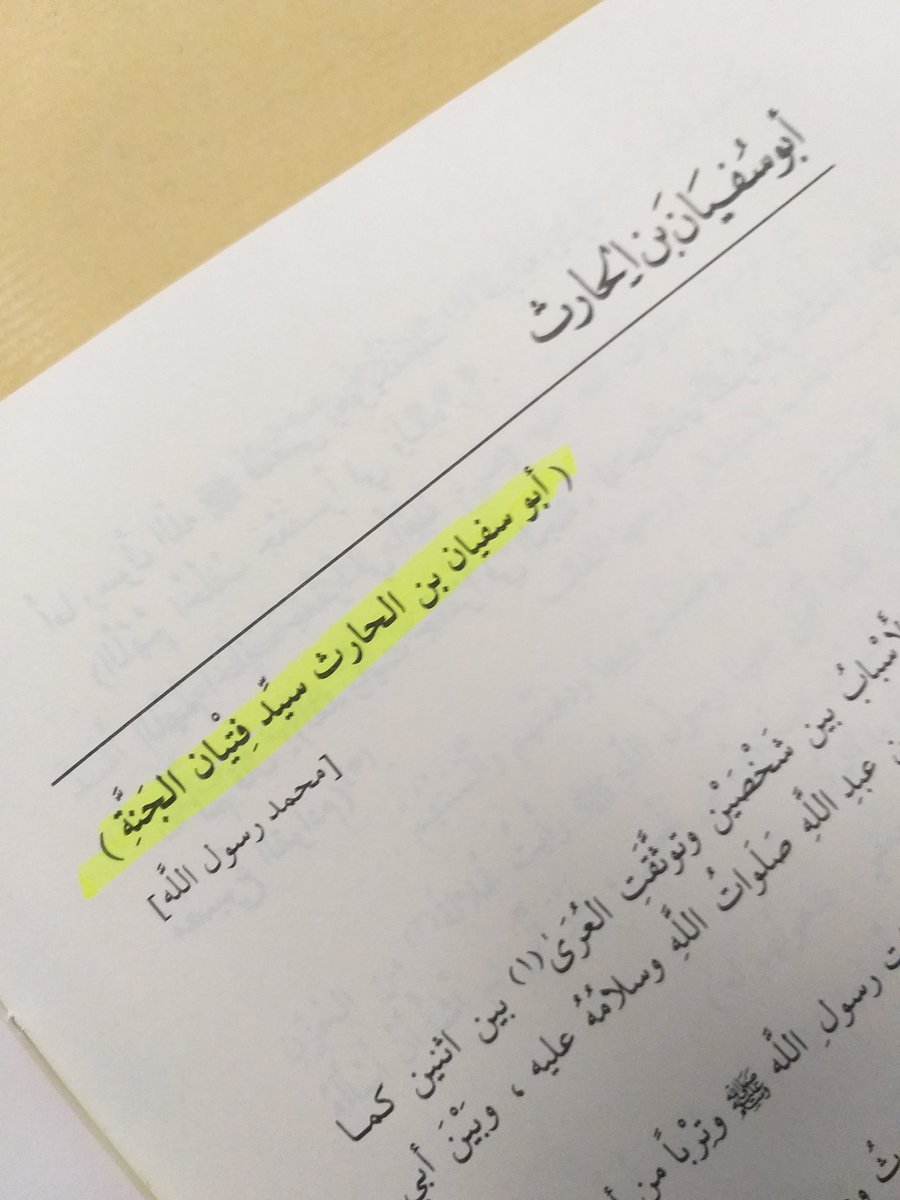 أبو سُفيَان بَن اِلحَارث
( أبو سفيان بن الحارث سيِّد فِتْيان الجَنةَِّ )
[محمد رسول اللَّه]
الأسْبابُ بين شَخْصَيْن وتوثَّقَتِ العُرَىٰ(١) بين اثنين كمـا
عبدِ اللَّهِ صَلَواتُ اللَّهِ وسلامُهُ عليه ، وبَيْنَ أبي
رسولِ اللَّه ﷺ وتِرْباً من